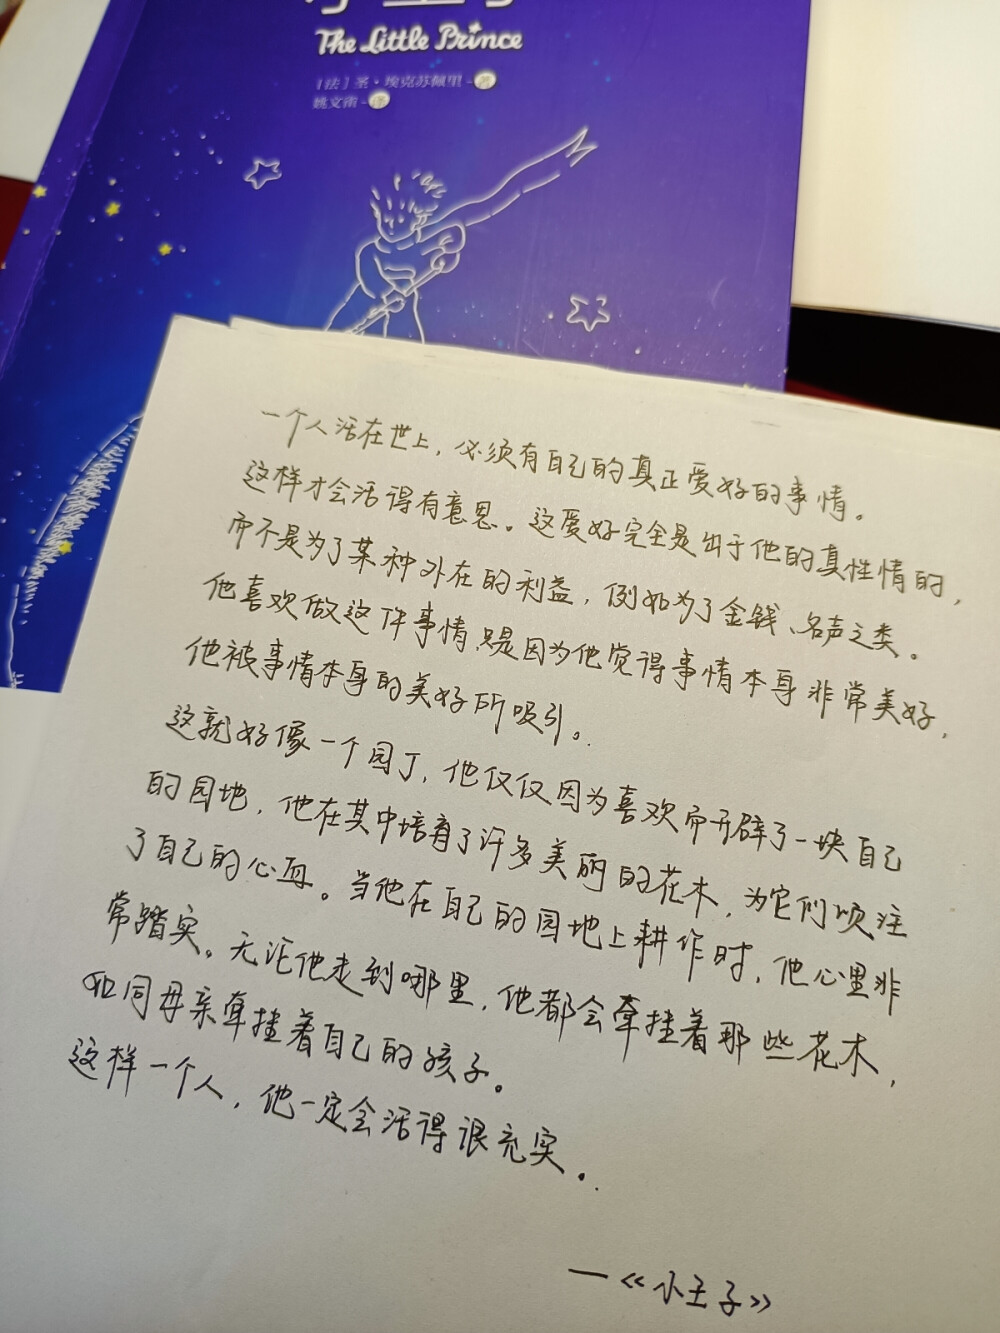 小王子
The Little Prince
［法］圣·埃克苏佩里-著
姚文雀-译
一个人活在世上，必须有自己的真正爱好的事情。
这样才会活得有意思。这爱好完全是出于他的真性情的，
而不是为了某种外在的利益，例如为了金钱、名声之类。
他喜欢做这件事情，只是因为他觉得事情本身非常美好，
他被事情本身的美好所吸引。
这就好像一个园丁，他仅仅因为喜欢而开辟了一块自己
的园地，他在其中培育了许多美丽的花木，为它们倾注
了自己的心血。当他在自己的园地上耕作时，他心里非
常踏实。无论他走到哪里，他都会牵挂着那些花木，
如同母亲牵挂着自己的孩子。
这样一个人，他一定会活得很充实。
—《小王子》